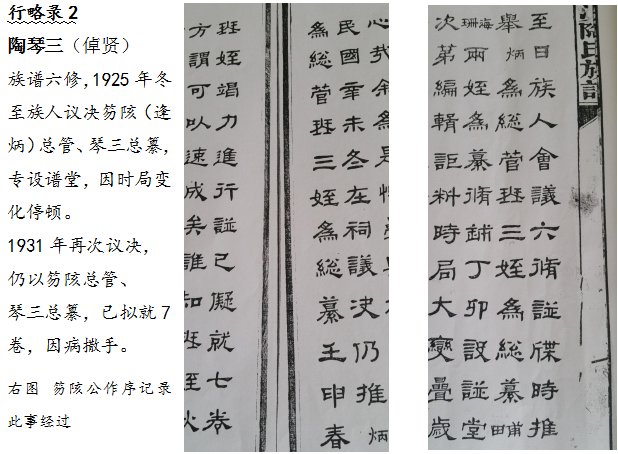 行略录 2
陶琴三（倬贤）
族谱六修,1925 年冬
至族人议决笏陔（逢
炳）总管、琴三总纂,
专设谱堂，因时局变
化停顿。
1931 年再次议决，
仍以笏陔总管、
琴三总纂，已拟就 7
卷，因病撒手。
右图 笏陔公作序记录
此事经过
氏族譜
至日族人會議六脩諩牒時推
舉炳為總管珡三姪為總纂甫田
海珊兩姪為纂脩鋪丁卯設諩堂
次第編輯詎料時局大變疊歲
民國辛未冬在祠議决仍推炳
為總管珡三姪為總纂壬申春
珡姪竭力進行諩已擬就七卷
方謂可以速成矣誰知珡至秋